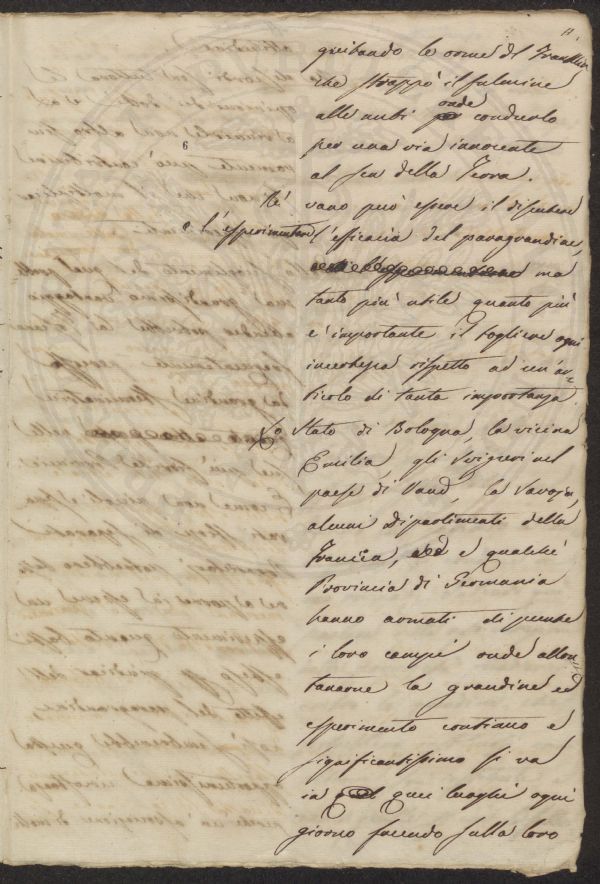 11.
guitando le orme del Franklin
che strappò il fulmine
alle nubi onde condurlo
per una via innocente
al sen della Terra.
Né vano può essere il discutere
e l'esperimentare l'efficacia del paragrandine,
ma
tanto più utile quanto più
è importante il togliere ogni
incertezza rispetto ad un'ar-
ticolo di tanta importanza.
Lo Stato di Bologna, la vicina
Emilia, gli Svizzeri nel
paese di Vaud, la Savoja,
alcuni Dipartimenti della
Francia, e qualche
Provincia di Germania
hanno armati di punte
i loro campi onde allon-
tanarne la grandine ed
esperimento continuo e
significantissimo si va
in quei luoghi ogni
giorno facendo sulla loro